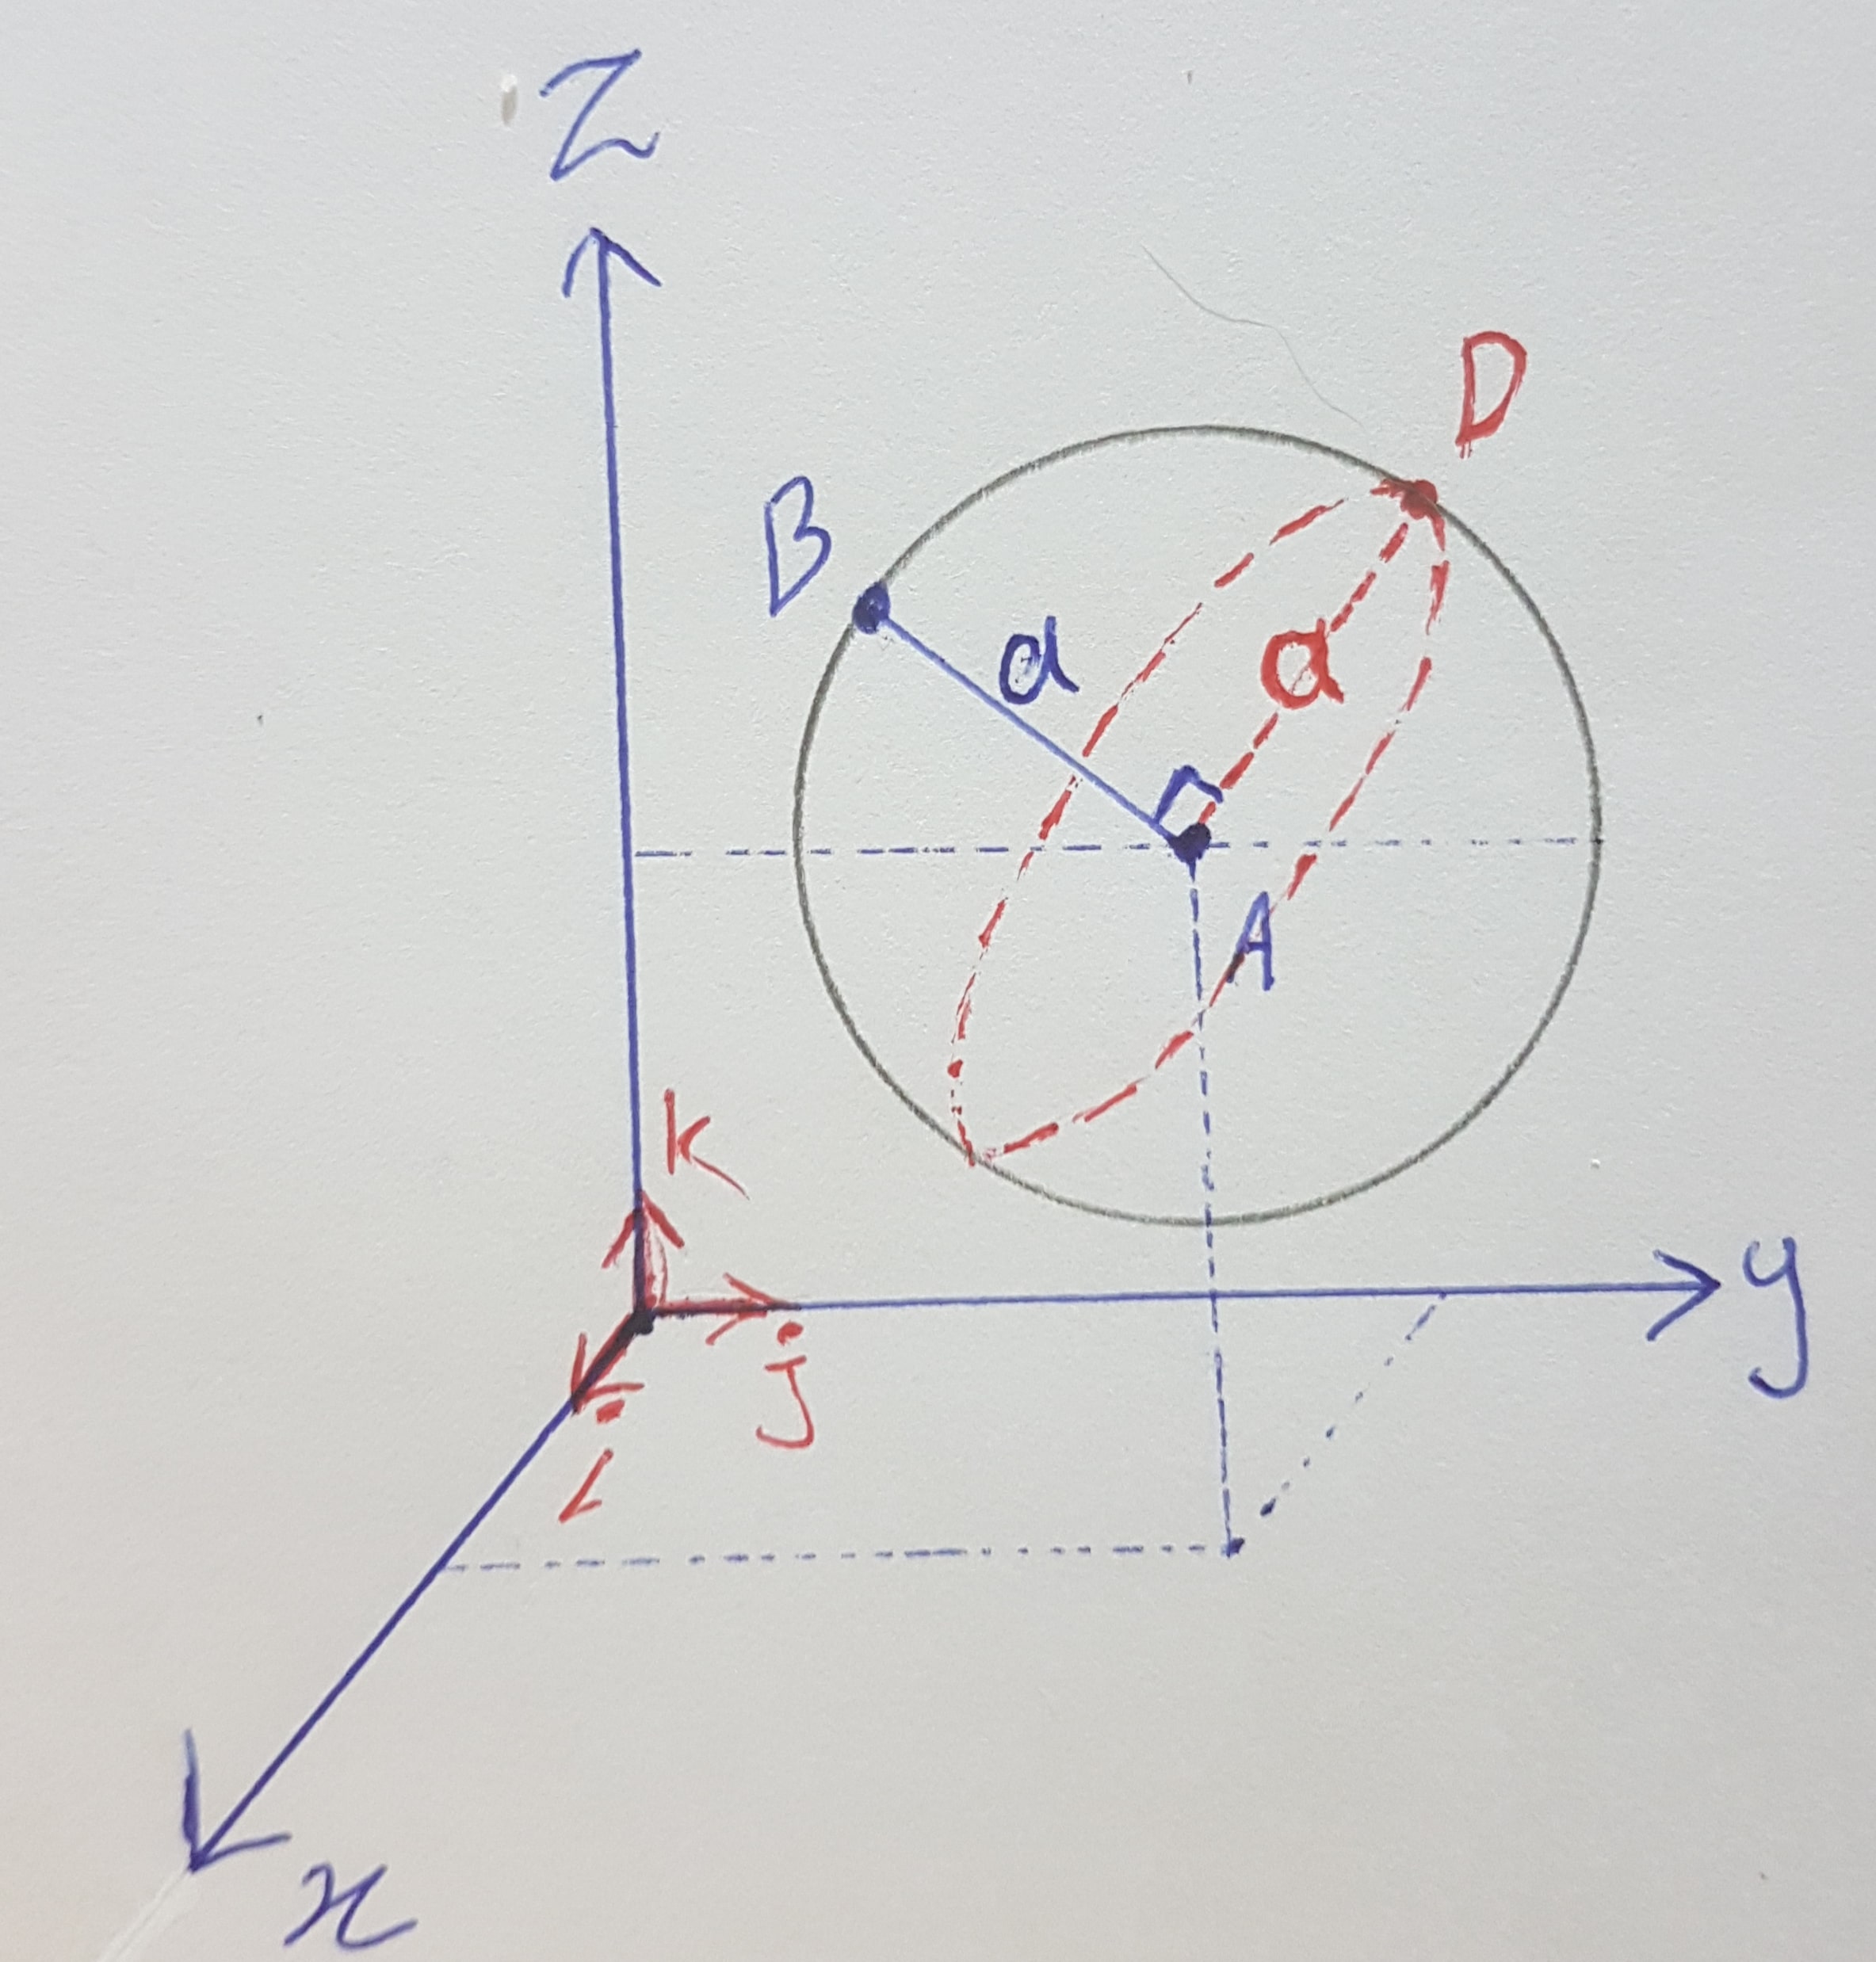 Z
D
B
a
a
A
k
y
j
i
x